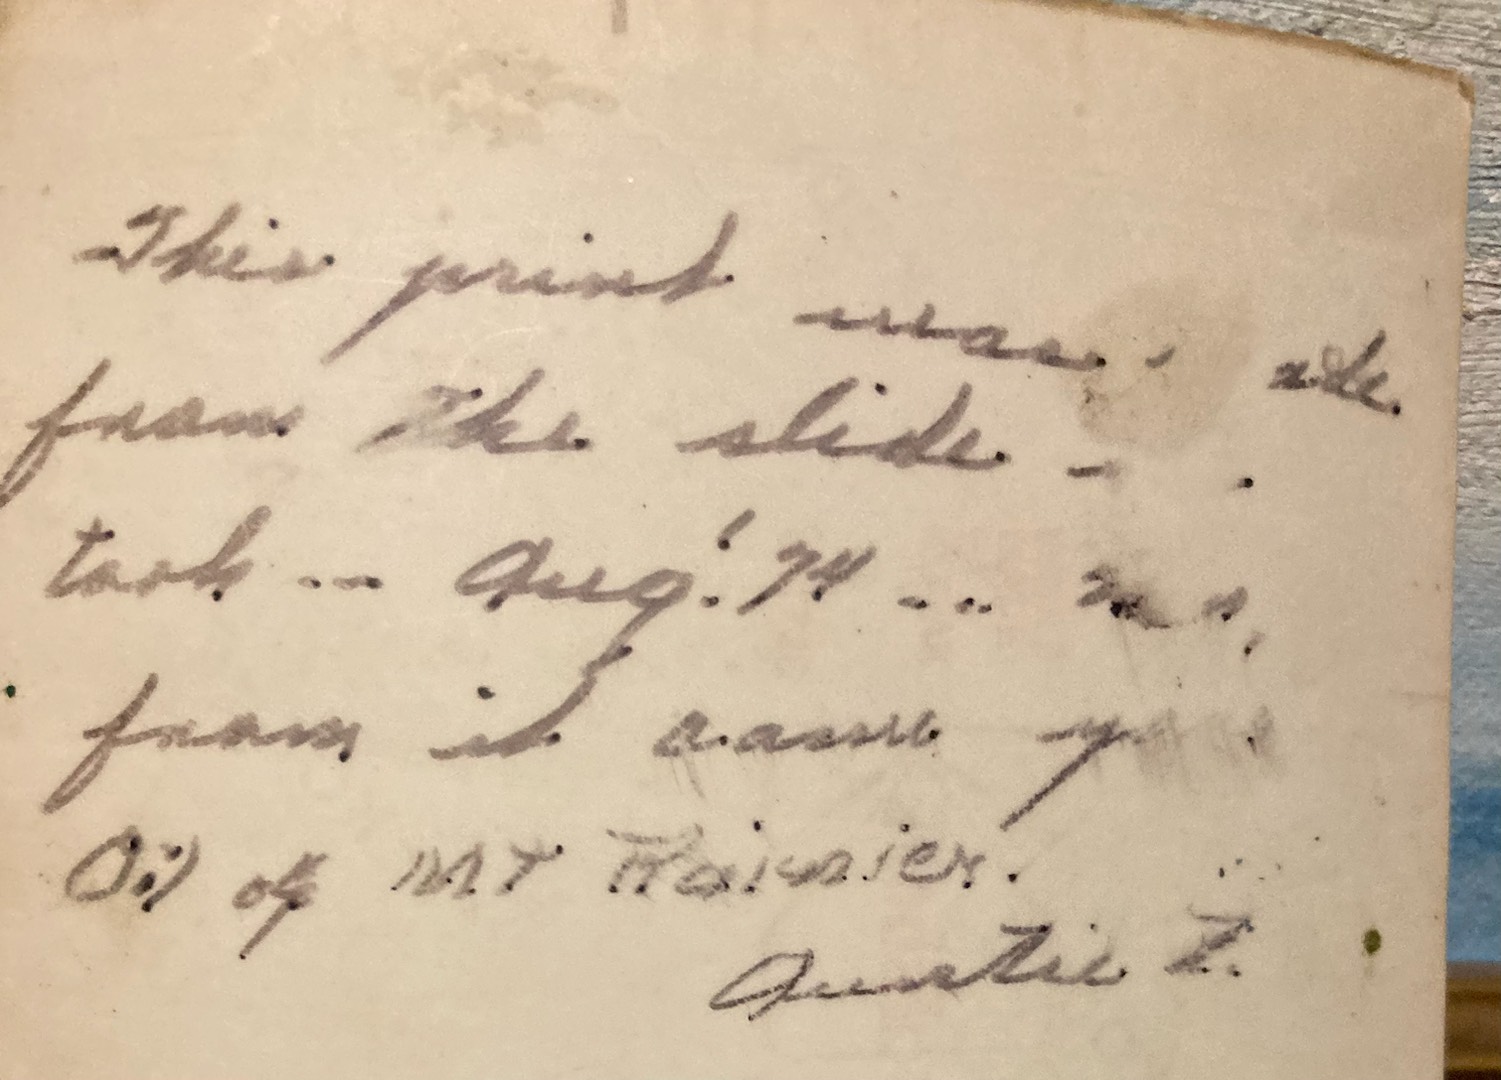 This print was
from the slide -
took -- Aug. '74 ...
from it came
Oil of MT Rainier.
Auntie